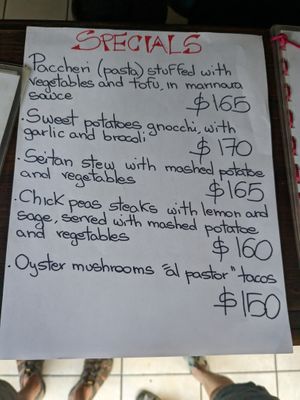 SPECIALS
Paccheri (pasta) stuffed with
vegetables and tofu, in marinara
sauce $165
· Sweet potatoes gnocchi, with
garlic and brocoli $170
· Seitan stew with mashed potatoe
and vegetables $165
· Chick peas steaks with lemon and
sage, served with mashed potatoe
and vegetables $160
· Oyster mushrooms "al pastor" tacos
$150